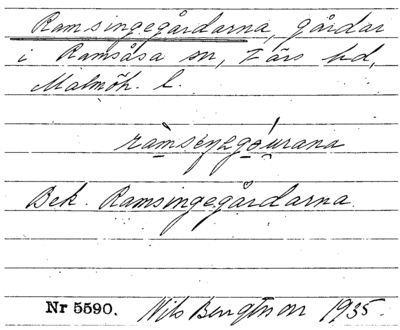 Ramsingegårdarna, gårdar
i Ramsåsa sn, Färs hd,
Malmöh. l.
Bek. Ramsingegårdarna.
Nr 5590. Nils Bengtsson 1935.